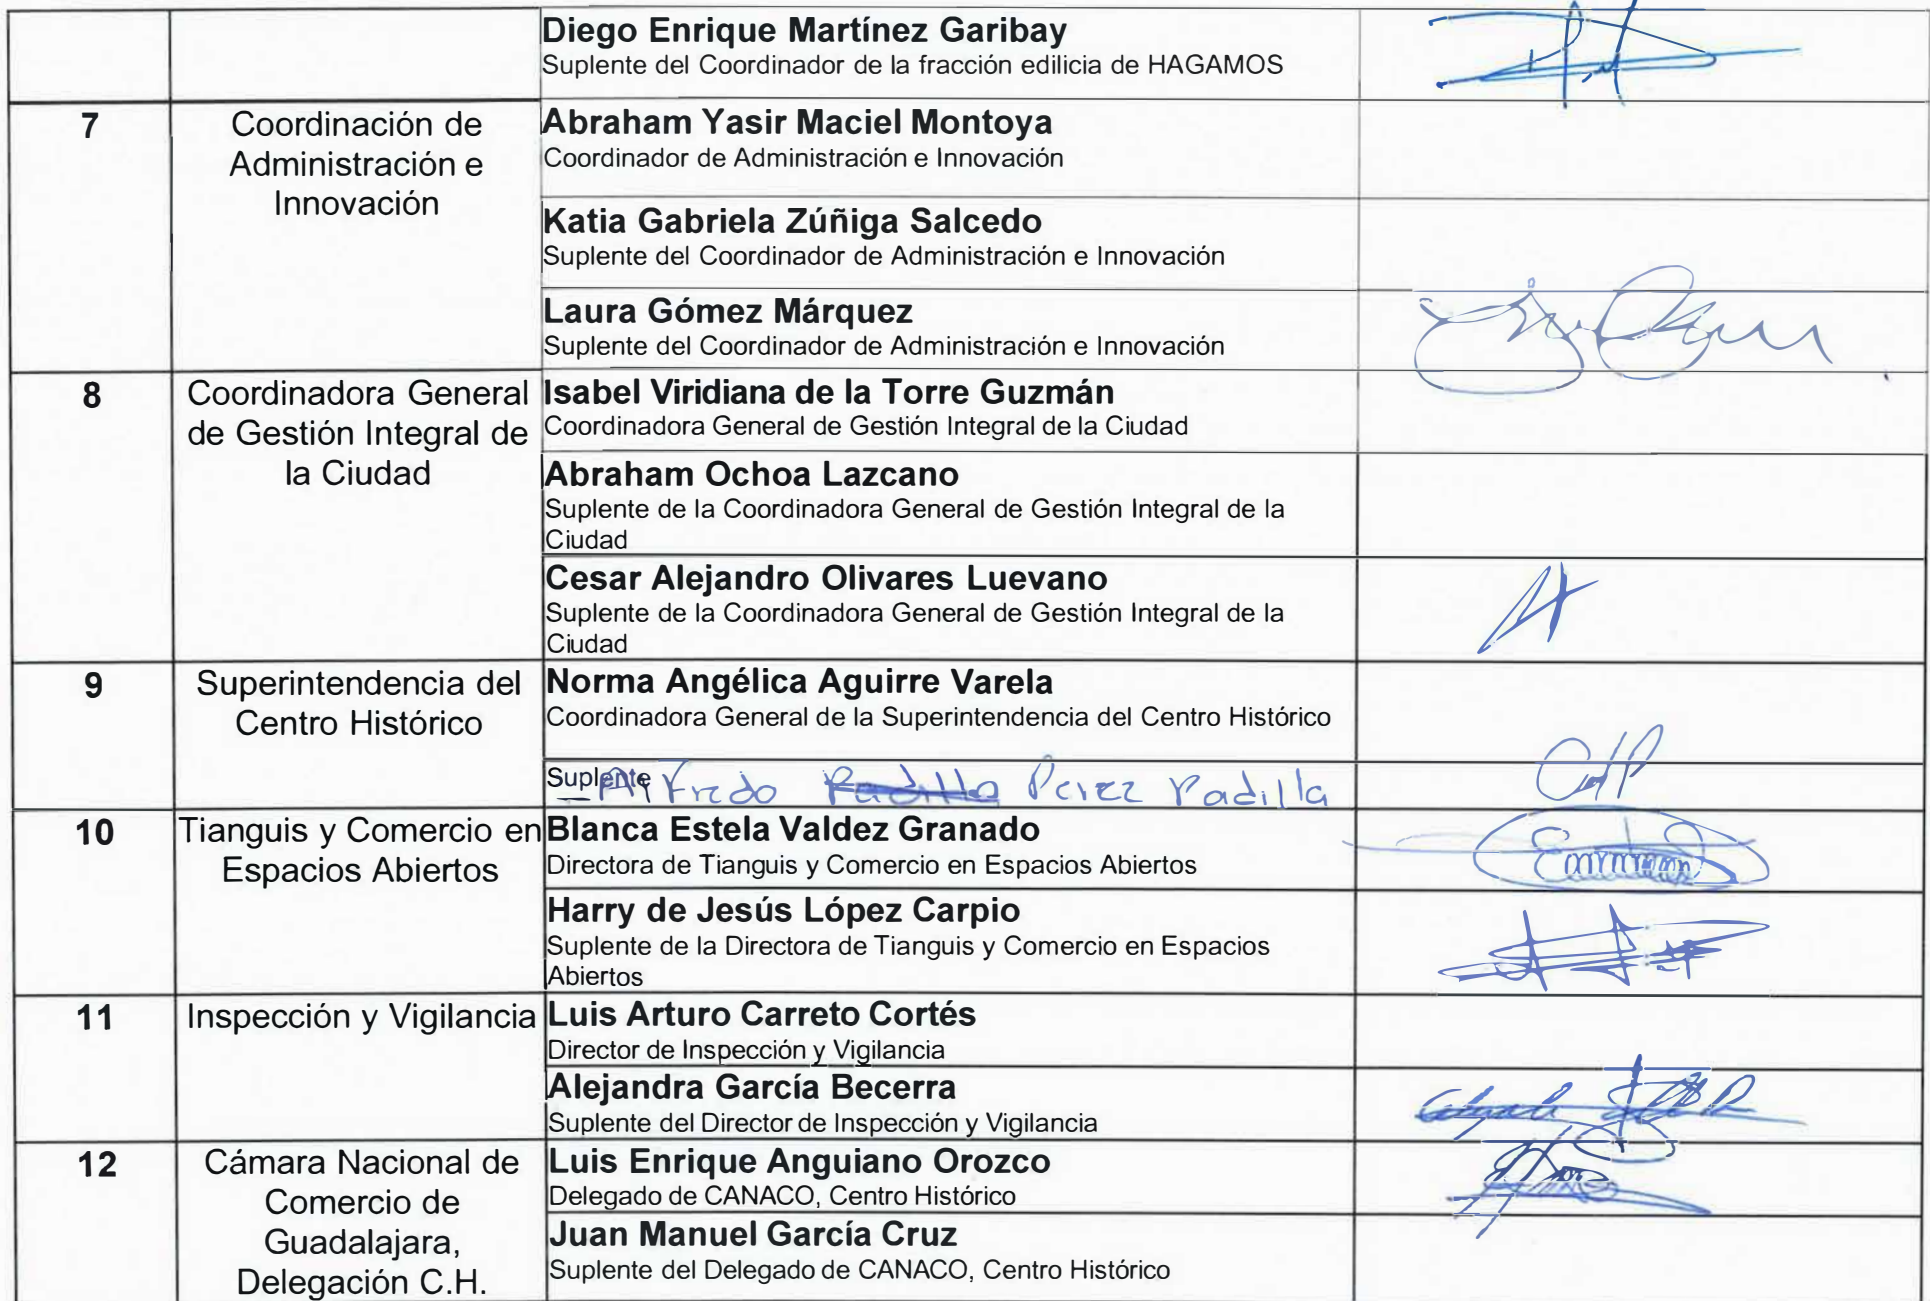 Diego Enrique Martínez Garibay
Suplente del Coordinador de la fracción edilicia de HAGAMOS
7
Coordinación de
Administración e
Innovación
Abraham Yasir Maciel Montoya
Coordinador de Administración e Innovación
Katia Gabriela Zúñiga Salcedo
Suplente del Coordinador de Administración e Innovación
Laura Gómez Márquez
Suplente del Coordinador de Administración e Innovación
8
Coordinadora General
de Gestión Integral de
la Ciudad
Isabel Viridiana de la Torre Guzmán
Coordinadora General de Gestión Integral de la Ciudad
Abraham Ochoa Lazcano
Suplente de la Coordinadora General de Gestión Integral de la
Ciudad
Cesar Alejandro Olivares Luevano
Suplente de la Coordinadora General de Gestión Integral de la
Ciudad
9
Superintendencia del
Centro Histórico
Norma Angélica Aguirre Varela
Coordinadora General de la Superintendencia del Centro Histórico
Suplente
Alfredo Padilla Perez Padilla
10
Tianguis y Comercio en
Espacios Abiertos
Blanca Estela Valdez Granado
Directora de Tianguis y Comercio en Espacios Abiertos
Harry de Jesús López Carpio
Suplente de la Directora de Tianguis y Comercio en Espacios
Abiertos
11
Inspección y Vigilancia
Luis Arturo Carreto Cortés
Director de Inspección y Vigilancia
Alejandra García Becerra
Suplente del Director de Inspección y Vigilancia
12
Cámara Nacional de
Comercio de
Guadalajara,
Delegación C.H.
Luis Enrique Anguiano Orozco
Delegado de CANACO, Centro Histórico
Juan Manuel García Cruz
Suplente del Delegado de CANACO, Centro Histórico